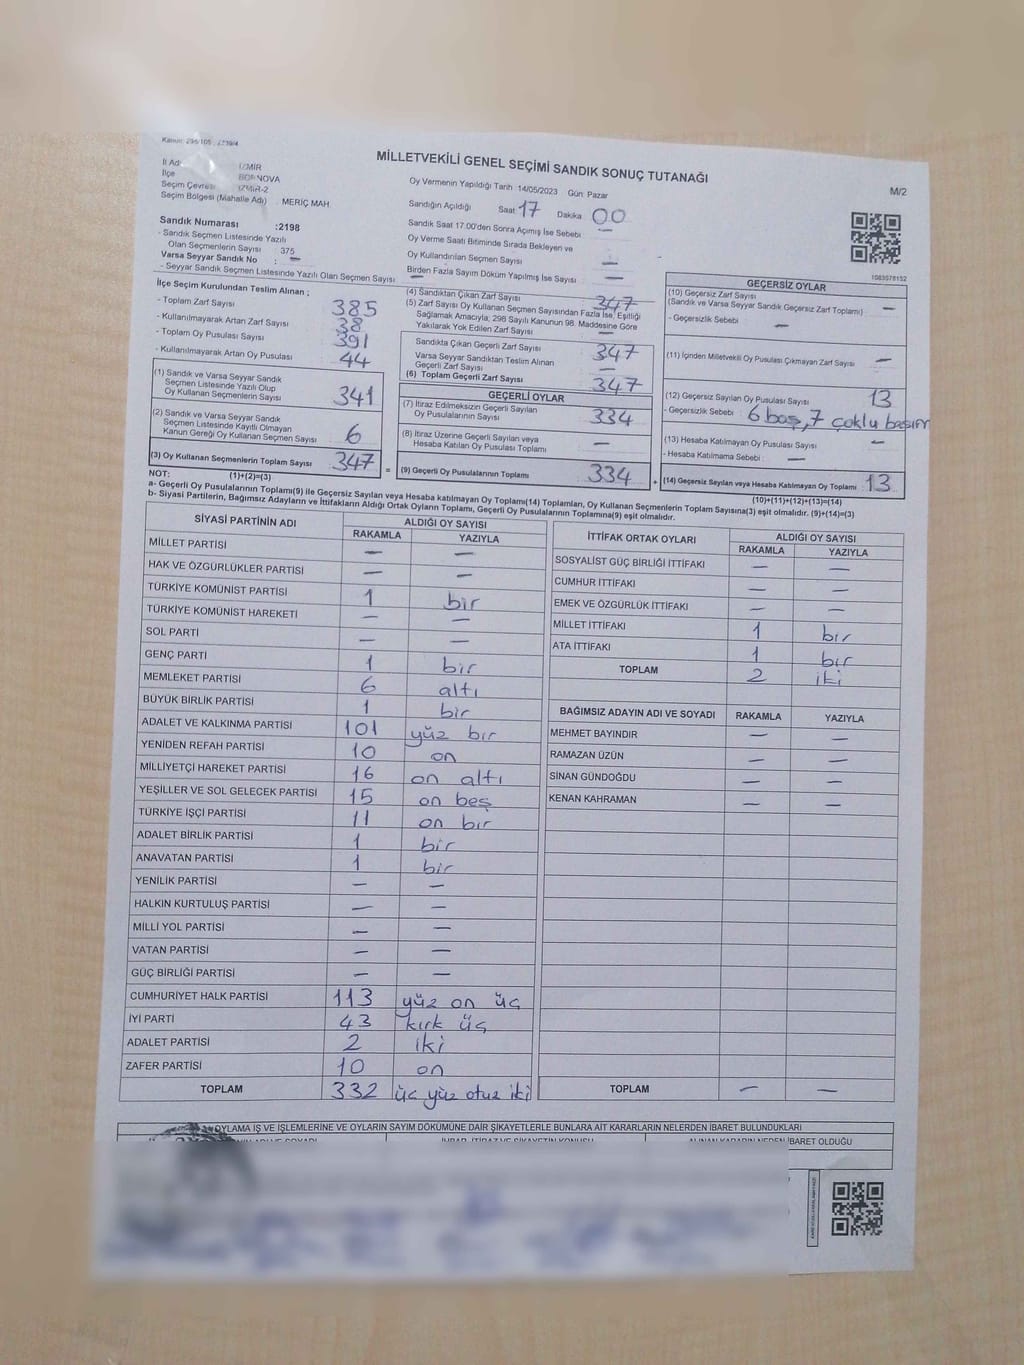 MİLLETVEKİLİ GENEL SEÇİMİ SANDIK SONUÇ TUTANAĞI
M/2
İl Ad İZMİR
İlçe BORNOVA
Seçim Çevresi İZMİR-2
Seçim Bölgesi (Mahalle Adı) . MERİÇ MAH.
Oy Vermenin Yapıldığı Tarih 14/05/2023 Gün: Pazar
Sandığın Açıldığı Saat 17 Dakika 00
Sandık Saat 17.00'den Sonra Açımış İse Sebebi —
Oy Verme Saati Bitiminde Sırada Bekleyen ve
Oy Kullandırılan Seçmen Sayısı —
Birden Fazla Sayım Döküm Yapılmış İse Sayısı —
Sandık Numarası :2198
- Sandık Seçmen Listesinde Yazılı
Olan Seçmenlerin Sayısı 375
Varsa Seyyar Sandık No : —
- Seyyar Sandık Seçmen Listesinde Yazılı Olan Seçmen Sayısı —
1083078152
İlçe Seçim Kurulundan Teslim Alınan ;
- Toplam Zarf Sayısı 385
- Kullanılmayarak Artan Zarf Sayısı 38
- Toplam Oy Pusulası Sayısı 391
- Kullanılmayarak Artan Oy Pusulası 44
(1) Sandık ve Varsa Seyyar Sandık
Seçmen Listesinde Yazılı Olup
Oy Kullanan Seçmenlerin Sayısı 341
(2) Sandık ve Varsa Seyyar Sandık
Seçmen Listesinde Kayıtlı Olmayan
Kanun Gereği Oy Kullanan Seçmen Sayısı 6
(3) Oy Kullanan Seçmenlerin Toplam Sayısı 347
(4) Sandıktan Çıkan Zarf Sayısı 347
(5) Zarf Sayısı Oy Kullanan Seçmen Sayısından Fazla İse, Eşitliği
Sağlamak Amacıyla, 298 Sayılı Kanunun 98. Maddesine Göre
Yakılarak Yok Edilen Zarf Sayısı —
Sandıkta Çıkan Geçerli Zarf Sayısı 347
Varsa Seyyar Sandıktan Teslim Alınan
Geçerli Zarf Sayısı —
(6) Toplam Geçerli Zarf Sayısı 347
GEÇERLİ OYLAR
(7) İtiraz Edilmeksizin Geçerli Sayılan
Oy Pusulalarının Sayısı 334
(8) İtiraz Üzerine Geçerli Sayılan veya
Hesaba Katılan Oy Pusulası Toplamı —
= (9) Geçerli Oy Pusulalarının Toplamı 334 +
GEÇERSİZ OYLAR
(10) Geçersiz Zarf Sayısı
(Sandık ve Varsa Seyyar Sandık Geçersiz Zarf Toplamı) —
- Geçersizlik Sebebi : —
(11) İçinden Milletvekili Oy Pusulası Çıkmayan Zarf Sayısı —
(12) Geçersiz Sayılan Oy Pusulası Sayısı 13
- Geçersizlik Sebebi : 6 boş, 7 çoklu basım
(13) Hesaba Katılmayan Oy Pusulası Sayısı —
- Hesaba Katılmama Sebebi : —
(14) Geçersiz Sayılan veya Hesaba Katılmayan Oy Toplamı 13
NOT: (1)+(2)=(3)
(10)+(11)+(12)+(13)=(14)
a- Geçerli Oy Pusulalarının Toplamı(9) ile Geçersiz Sayılan veya Hesaba katılmayan Oy Toplamı(14) Toplamları, Oy Kullanan Seçmenlerin Toplam Sayısına(3) eşit olmalıdır. (9)+(14)=(3)
b- Siyasi Partilerin, Bağımsız Adayların ve İttifakların Aldığı Ortak Oyların Toplamı, Geçerli Oy Pusulalarının Toplamına(9) eşit olmalıdır.
SİYASİ PARTİNİN ADI ALDIĞI OY SAYISI
RAKAMLA YAZIYLA
MİLLET PARTİSİ — —
HAK VE ÖZGÜRLÜKLER PARTİSİ — —
TÜRKİYE KOMÜNİST PARTİSİ 1 bir
TÜRKİYE KOMÜNİST HAREKETİ — —
SOL PARTİ — —
GENÇ PARTİ 1 bir
MEMLEKET PARTİSİ 6 altı
BÜYÜK BİRLİK PARTİSİ 1 bir
ADALET VE KALKINMA PARTİSİ 101 yüz bir
YENİDEN REFAH PARTİSİ 10 on
MİLLİYETÇİ HAREKET PARTİSİ 16 on altı
YEŞİLLER VE SOL GELECEK PARTİSİ 15 on beş
TÜRKİYE İŞÇİ PARTİSİ 11 on bir
ADALET BİRLİK PARTİSİ 1 bir
ANAVATAN PARTİSİ 1 bir
YENİLİK PARTİSİ — —
HALKIN KURTULUŞ PARTİSİ — —
MİLLİ YOL PARTİSİ — —
VATAN PARTİSİ — —
GÜÇ BİRLİĞİ PARTİSİ — —
CUMHURİYET HALK PARTİSİ 113 yüz on üç
İYİ PARTİ 43 kırk üç
ADALET PARTİSİ 2 iki
ZAFER PARTİSİ 10 on
TOPLAM 332 üç yüz otuz iki
İTTİFAK ORTAK OYLARI ALDIĞI OY SAYISI
RAKAMLA YAZIYLA
SOSYALİST GÜÇ BİRLİĞİ İTTİFAKI — —
CUMHUR İTTİFAKI — —
EMEK VE ÖZGÜRLÜK İTTİFAKI — —
MİLLET İTTİFAKI 1 bir
ATA İTTİFAKI 1 bir
TOPLAM 2 iki
BAĞIMSIZ ADAYIN ADI VE SOYADI RAKAMLA YAZIYLA
MEHMET BAYINDIR — —
RAMAZAN ÜZÜN — —
SİNAN GÜNDOĞDU — —
KENAN KAHRAMAN — —
TOPLAM — —
OYLAMA İŞ VE İŞLEMLERİNE VE OYLARIN SAYIM DÖKÜMÜNE DAİR ŞİKAYETLERLE BUNLARA AİT KARARLARIN NELERDEN İBARET BULUNDUKLARI
İBARET OLDUĞU